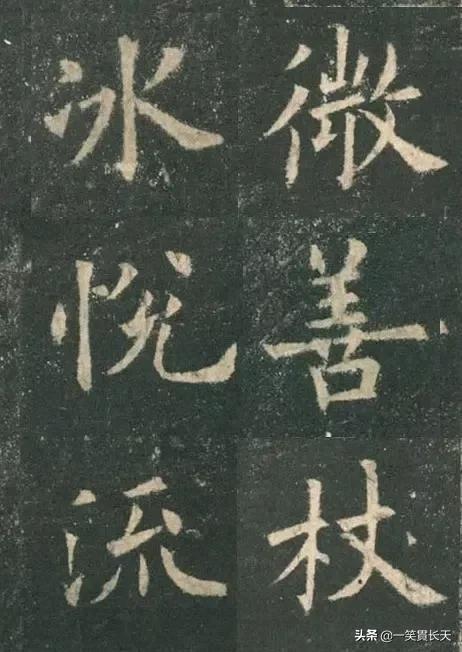 微善杖
冰悦流
头条 @一笑贯长天